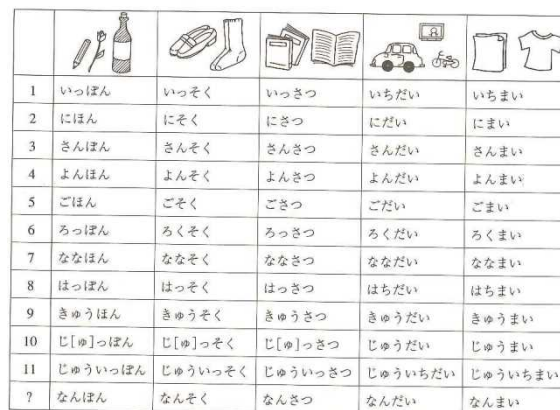 1 いっぽん いっそく いっさつ いちだい いちまい
2 にほん にそく にさつ にだい にまい
3 さんぼん さんそく さんさつ さんだい さんまい
4 よんほん よんそく よんさつ よんだい よんまい
5 ごほん ごそく ごさつ ごだい ごまい
6 ろっぽん ろくそく ろくさつ ろくだい ろくまい
7 ななほん ななそく ななさつ ななだい ななまい
8 はっぽん はっそく はっさつ はちだい はちまい
9 きゅうほん きゅうそく きゅうさつ きゅうだい きゅうまい
10 じ[ゅ]っぽん じ[ゅ]っそく じ[ゅ]っさつ じゅうだい じゅうまい
11 じゅういっぽん じゅういっそく じゅういっさつ じゅういちだい じゅういちまい
? なんぼん なんそく なんさつ なんだい なんまい